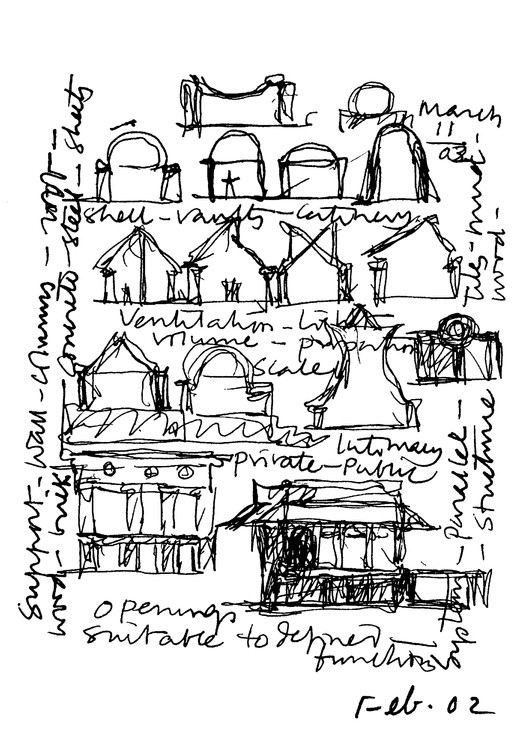 March
11
02
Shell - vaults - catenary
Ventilation - light
volume - proportion
Scale
Intimacy
private - Public
Openings
suitable to defined
functions
Feb. 02
Support - wall - columns - floor -
wood - brick - concrete - steel - sheets
Tiles - mud -
wood -
System - Parallel -
- Structure